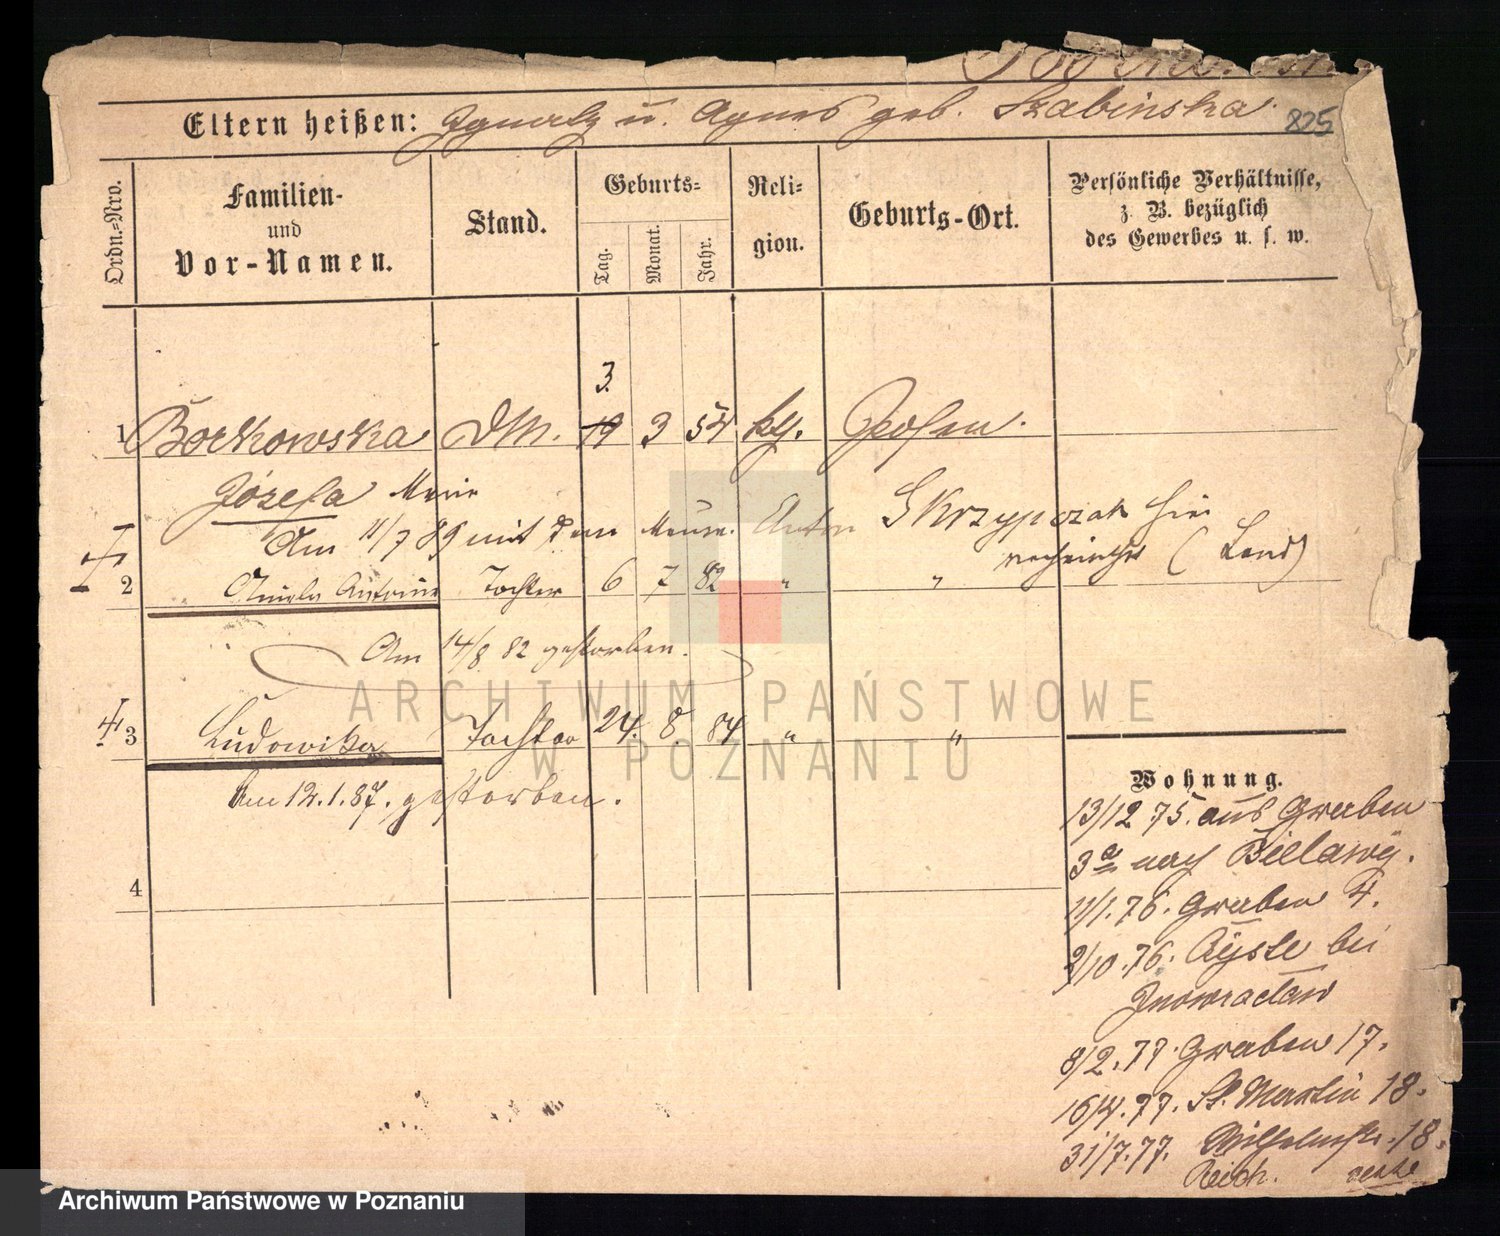 Eltern heißen: Ignatz u. Agnes geb. Szabinska. 825
Ordn.-Nro.
Familien-
und
Vor-Namen.
Stand.
Geburts-
Tag.
Monat.
Jahr.
Reli-
gion.
Geburts-Ort.
Persönliche Verhältnisse,
z. B. bezüglich
des Gewerbes u. s. w.
3.
1 Borkowska DM. 19 3 54 kth. Posen.
Józefa Marie
Am 11/7 89 mit dem Maurer Anton Skrzypczak hier
verheirathet (Land)
2 Antonie Tochter 6 7 82 "  "
Am 14/8 82 gestorben.
3 Ludowika Tochter 24. 8 84 " "
Am 12.1.87. gestorben.
4
Wohnung.
13/12 75. aus Graben
3a nach Bielawy.
11/1. 76. Graben 4.
2/10. 76. bei
Inowraclaw
8/2. 77. Graben 17.
16/4. 77. St. Martin 18.
31/7. 77. Wilhelmstr. 18.
ARCHIWUM PAŃSTWOWE
W POZNANIU
Archiwum Państwowe w Poznaniu